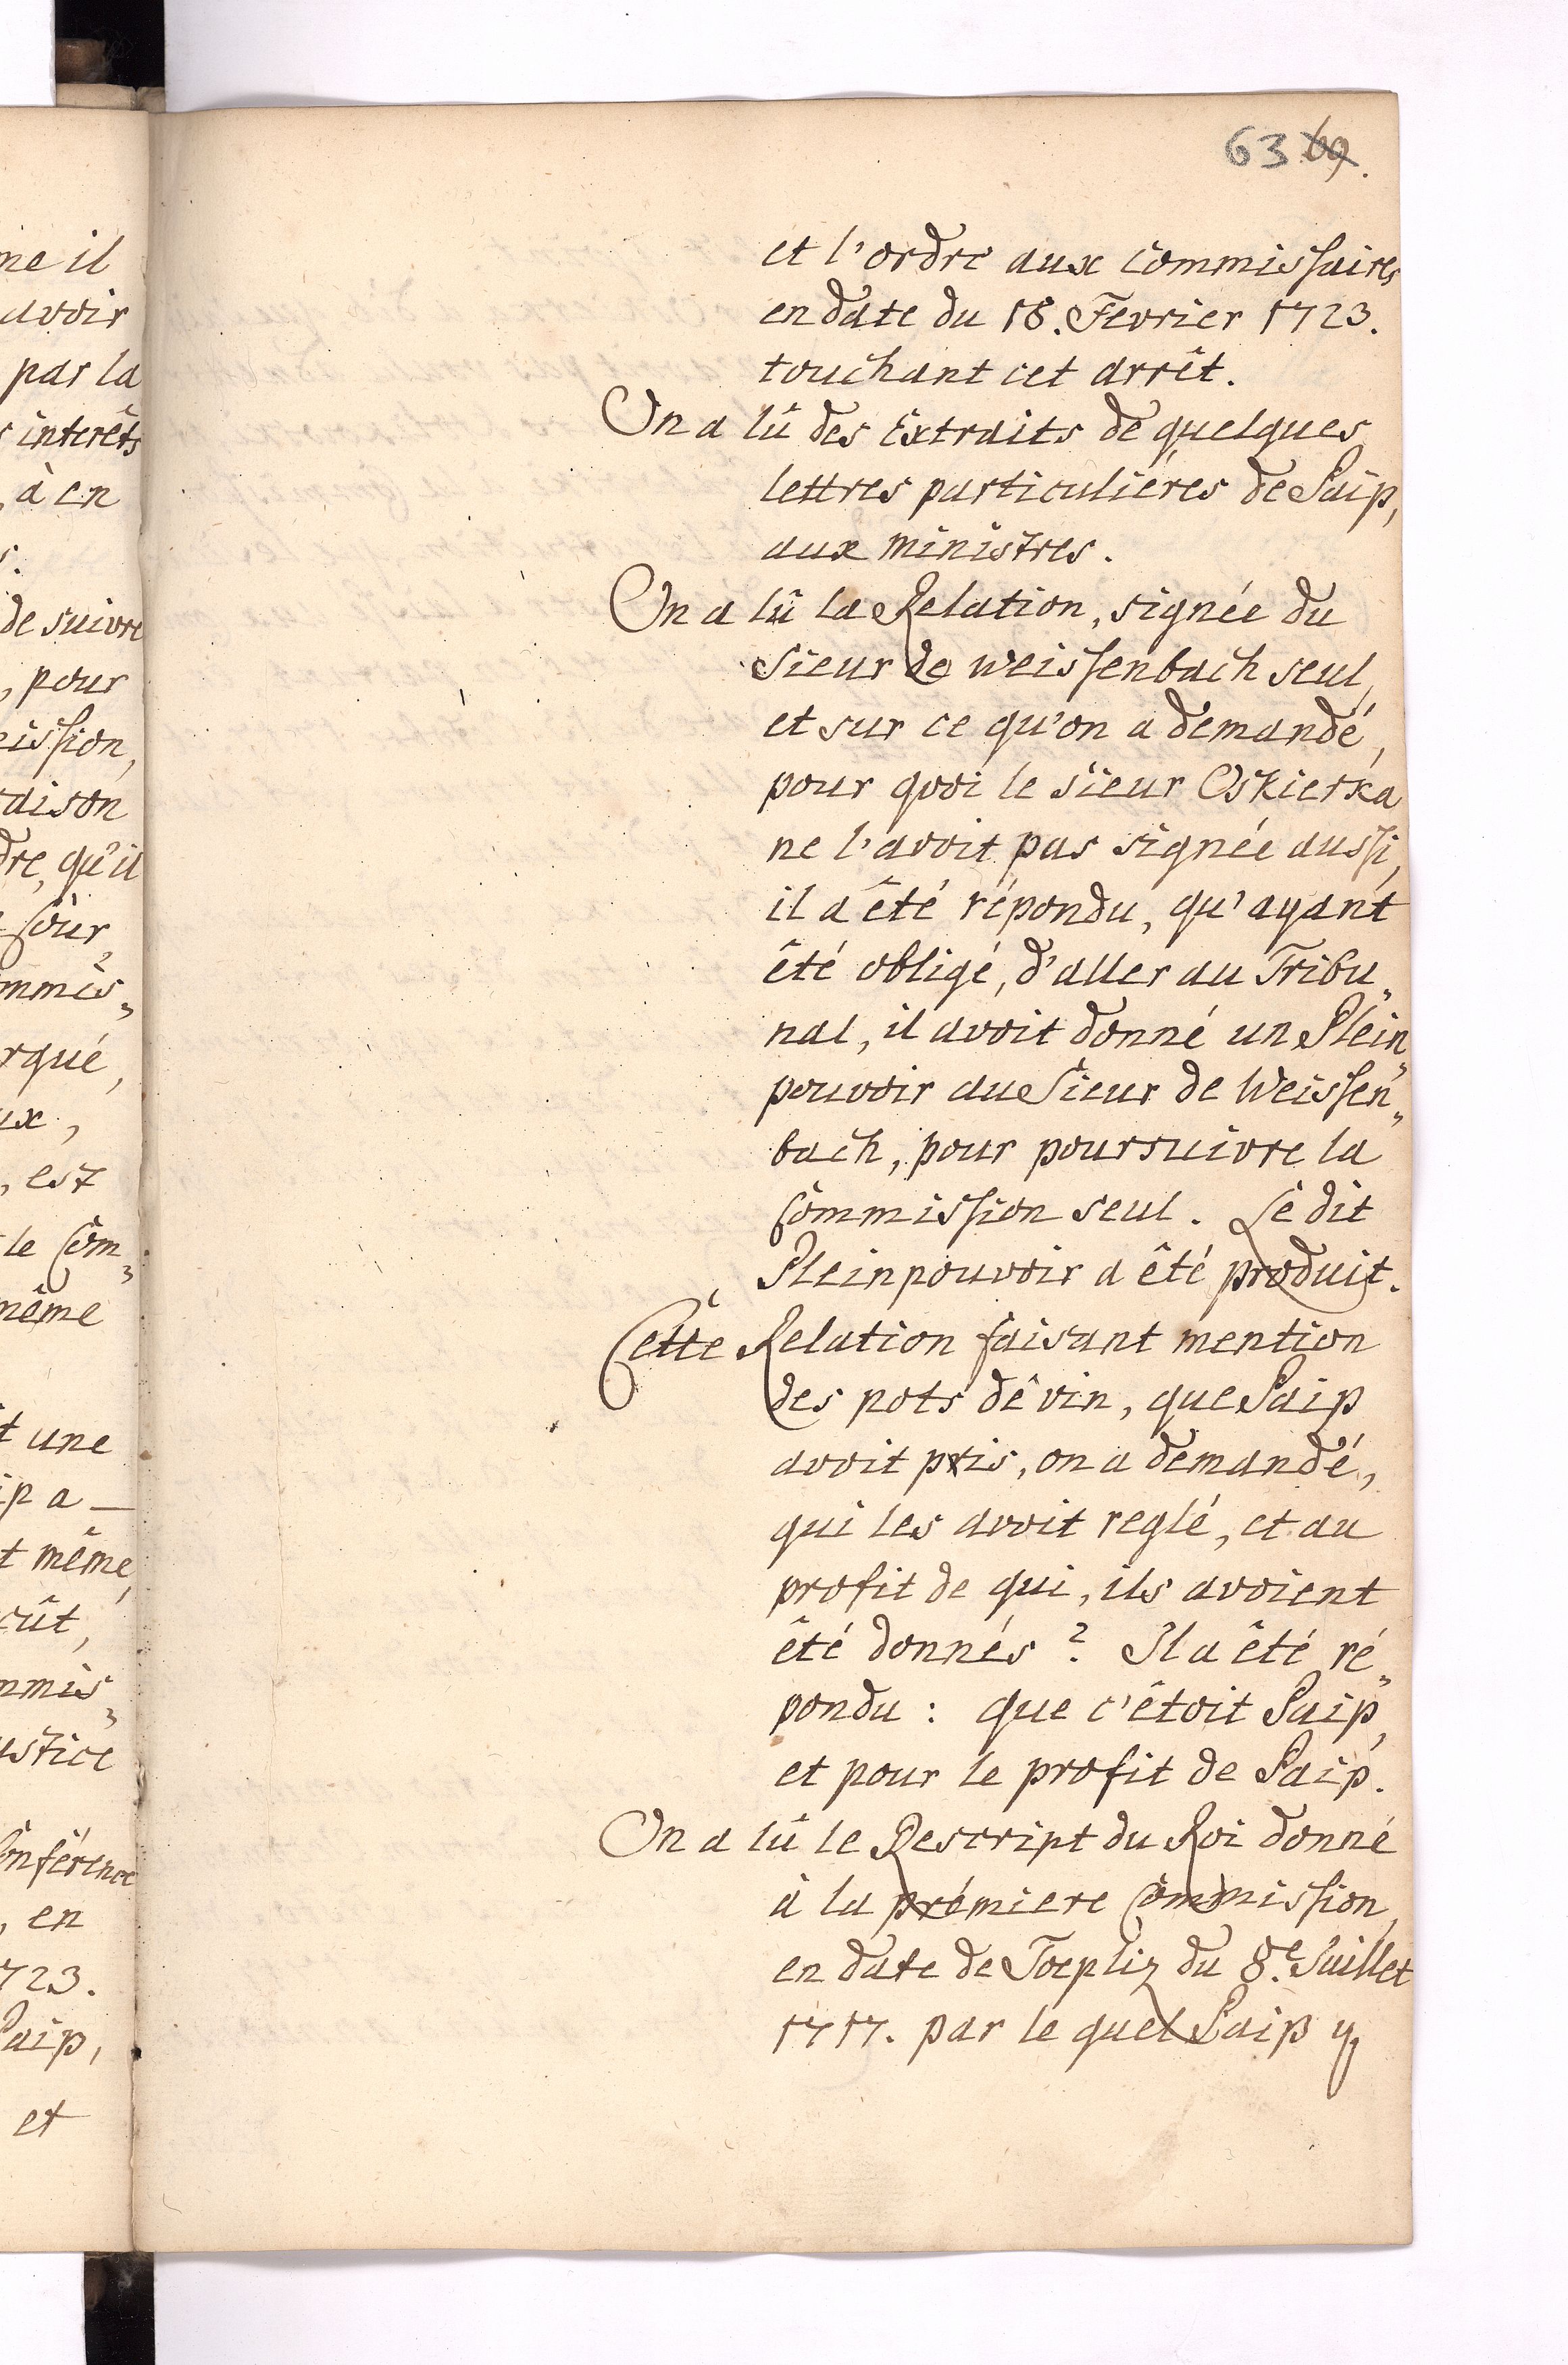 63 69.
ne il
avoir
par la
interêts
, à en
de suivre
, pour
ission,
aison
dre, qu'il
Cour,
mmis„
rqué,
ux,
, est
le Com„
même
t une
ip a —
t même,
cût,
mmis„
ustice
onférence
, en
723.
aip,
et
et l'ordre aux Commissaires
en date du 18. Fevrier 1723.
touchant cet arrêt.
On a lû des Extraits de quelques
lettres particuliéres de Paip,
aux ministres.
On a lû la Relation, signée du
Sieur de Weissenbach seul,
et sur ce qu'on a demandé,
pour quoi le Sieur Oskierka
ne l'avoit pas signée aussi,
il a êté répondu, qu'ayant
êté obligé, d'aller au Tribu„
nal, il avoit donné un Plein„
pouvoir au Sieur de Weissen„
bach, pour poursuivre la
Commission seul. Le dit
Pleinpouvoir a êté produit.
Cette Relation faisant mention
des pots de vin, que Paip
avoit pris, on a demandé,
qui les avoit reglé, et au
profit de qui, ils avoient
êté donnés? Il a êté ré„
pondu: que c'êtoit Paip,
et pour le profit de Paip.
On a lû le Rescript du Roi donné
à la prémiere Commission,
en date de Toepliz du 8.e Juillet
1717. par le quel Paip y